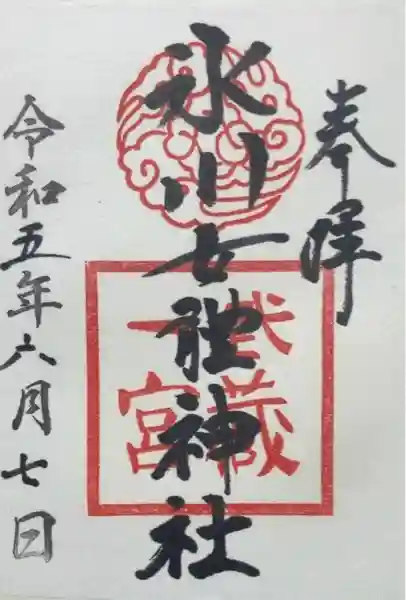 奉拝
氷川女體神社
武蔵
一宮
令和五年六月七日